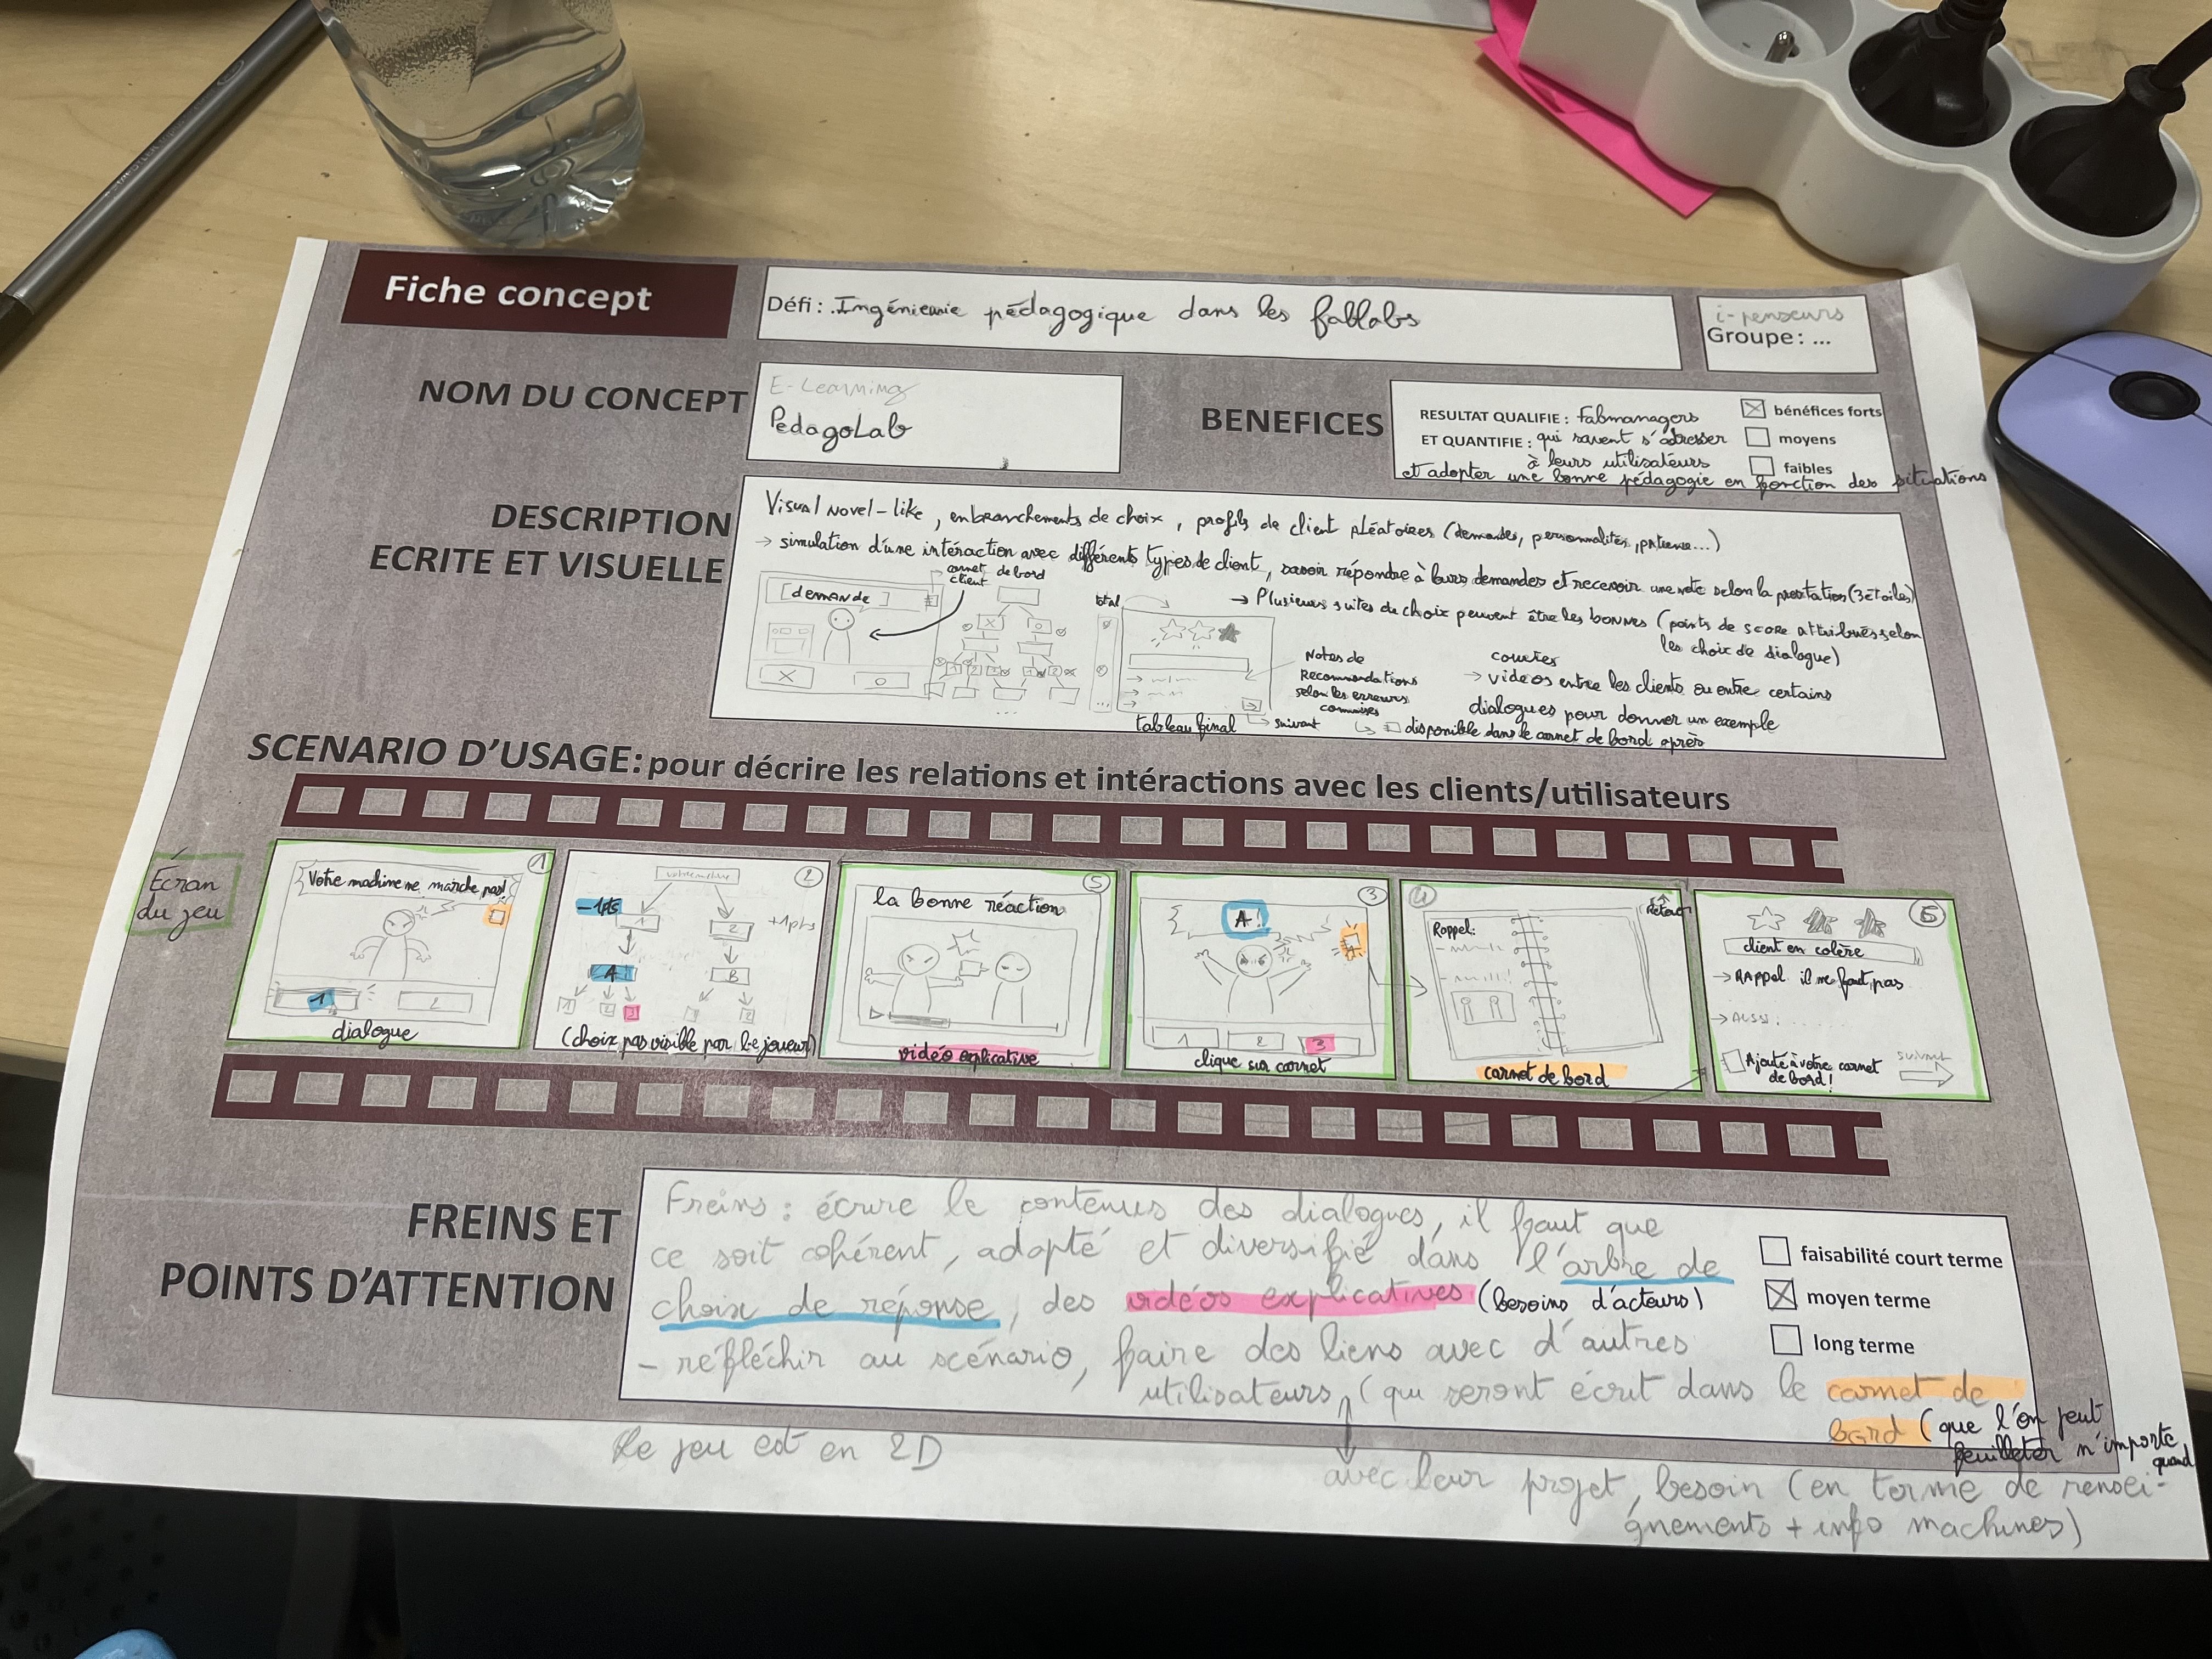 Fiche concept
Défi : Ingénieurie pédagogique dans les fablabs
i-penseurs
Groupe : ...
NOM DU CONCEPT
E-Learning
PédagoLab
BENEFICES
RESULTAT QUALIFIE : Fabmanagers
ET QUANTIFIE : qui savent s'adresser
à leurs utilisateurs
et adopter une bonne pédagogie en fonction des situations
bénéfices forts
moyens
faibles
DESCRIPTION
ECRITE ET VISUELLE
Visual Novel-like, embranchements de choix, profils de client aléatoires (demandes, personnalités, patience...)
→ simulation d'une intéraction avec différents types de client, savoir répondre à leurs demandes et recevoir une note selon la prestation (3 étoiles)
→ Plusieurs suites de choix peuvent être les bonnes (points de score attribués selon
les choix de dialogue)
carnet de bord
client
[demande]
X
O
total
Notes de
Recommandations
selon les erreurs
commises
courtes
→ vidéos entre les clients ou entre certains
dialogues pour donner un exemple
tableau final
suivant
disponible dans le carnet de bord après
SCENARIO D'USAGE: pour décrire les relations et intéractions avec les clients/utilisateurs
Écran
du jeu
1
Votre machine ne marche pas!
1
2
dialogue
2
-1pts
1
2
+1pts
A
B
1
2
3
1
2
(choix pas visible par le joueur)
5
la bonne réaction
vidéo explicative
3
A!
1
2
3
clique sur carnet
4
Retour
Rappel:
carnet de bord
6
client en colère
→ RAppel il ne faut pas
→ Aussi : ......
Ajouté à votre carnet
de bord !
suivant
FREINS ET
POINTS D'ATTENTION
Freins : écrire le contenus des dialogues, il faut que
ce soit cohérent, adapté et diversifié dans l'arbre de
choix de réponse, des vidéos explicatives (besoins d'acteurs)
- réfléchir au scénario, faire des liens avec d'autres
utilisateurs (qui seront écrit dans le carnet de
bord (que l'on peut
feuilleter n'importe
quand
faisabilité court terme
moyen terme
long terme
Le jeu est en 2D
avec leur projet, besoin (en terme de rensei-
gnements + info machines)